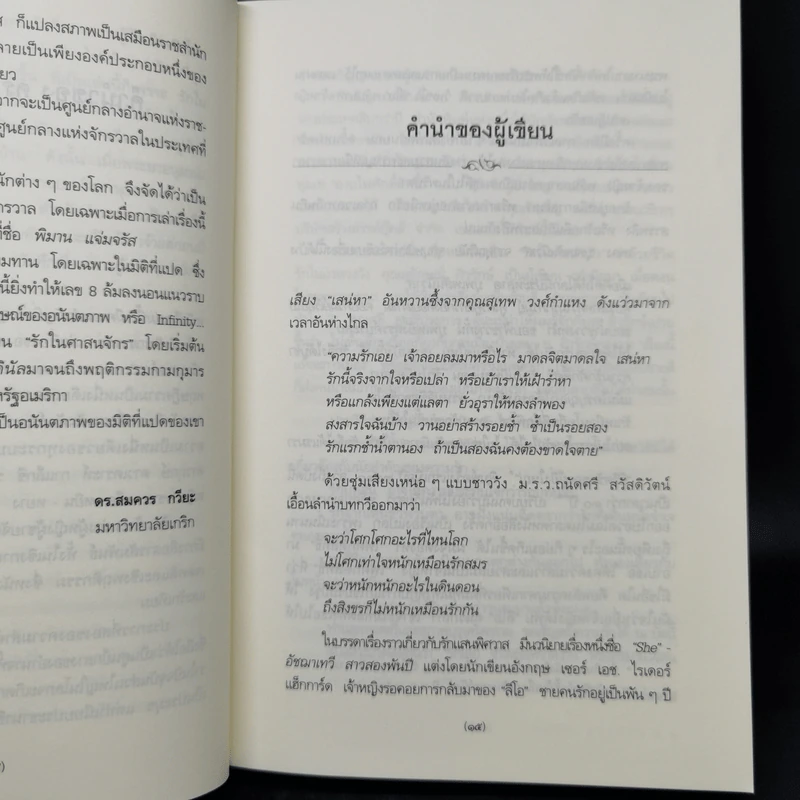 ก็แปลงสภาพเป็นเสมือนราชสำนัก
ลายเป็นเพียงองค์ประกอบหนึ่งของ
ยว
ากจะเป็นศูนย์กลางอำนาจแห่งราช-
ศูนย์กลางแห่งจักรวาลในประเทศที่
นักต่าง ๆ ของโลก จึงจัดได้ว่าเป็น
กรวาล โดยเฉพาะเมื่อการเล่าเรื่องนี้
ที่ชื่อ พิมาน แจ่มจรัส
มทาน โดยเฉพาะในมิติที่แปด ซึ่ง
นี้ยิ่งทำให้เลข 8 ล้มลงนอนแนวราบ
ษณ์ของอนันตภาพ หรือ Infinity...
น "รักในศาสนจักร" โดยเริ่มต้น
ดินัลมาจนถึงพฤติกรรมกามกุมาร
หรัฐอเมริกา
เป็นอนันตภาพของมิติที่แปดของเขา
ดร.สมควร กวียะ
มหาวิทยาลัยเกริก
คำนำของผู้เขียน
เสียง "เสน่หา" อันหวานซึ้งจากคุณสุเทพ วงศ์กำแหง ดังแว่วมาจาก
เวลาอันห่างไกล
"ความรักเอย เจ้าลอยลมมาหรือไร มาดลจิตมาดลใจ เสน่หา
รักนี้จริงจากใจหรือเปล่า หรือเย้าเราให้เฝ้าร่ำหา
หรือแกล้งเพียงแต่แลตา ยั่วอุราให้หลงลำพอง
สงสารใจฉันบ้าง วานอย่าสร้างรอยช้ำ ซ้ำเป็นรอยสอง
รักแรกช้ำน้ำตานอง ถ้าเป็นสองฉันคงต้องขาดใจตาย"
ด้วยซุ่มเสียงเหน่อ ๆ แบบชาววัง ม.ร.ว.ถนัดศรี สวัสดิวัตน์
เอื้อนลำนำบทกวีออกมาว่า
จะว่าโศกโศกอะไรที่ไหนโลก
ไม่โศกเท่าใจหนักเหมือนรักสมร
จะว่าหนักหนักอะไรในดินดอน
ถึงสิงขรก็ไม่หนักเหมือนรักกัน
ในบรรดาเรื่องราวเกี่ยวกับรักแสนพิศวาส มีนวนิยายเรื่องหนึ่งชื่อ "She" -
อัชฌาเทวี สาวสองพันปี แต่งโดยนักเขียนอังกฤษ เซอร์ เอช. ไรเดอร์
แฮ็กการ์ด เจ้าหญิงรอคอยการกลับมาของ "ลีโอ" ชายคนรักอยู่เป็นพัน ๆ ปี
(๑๕)